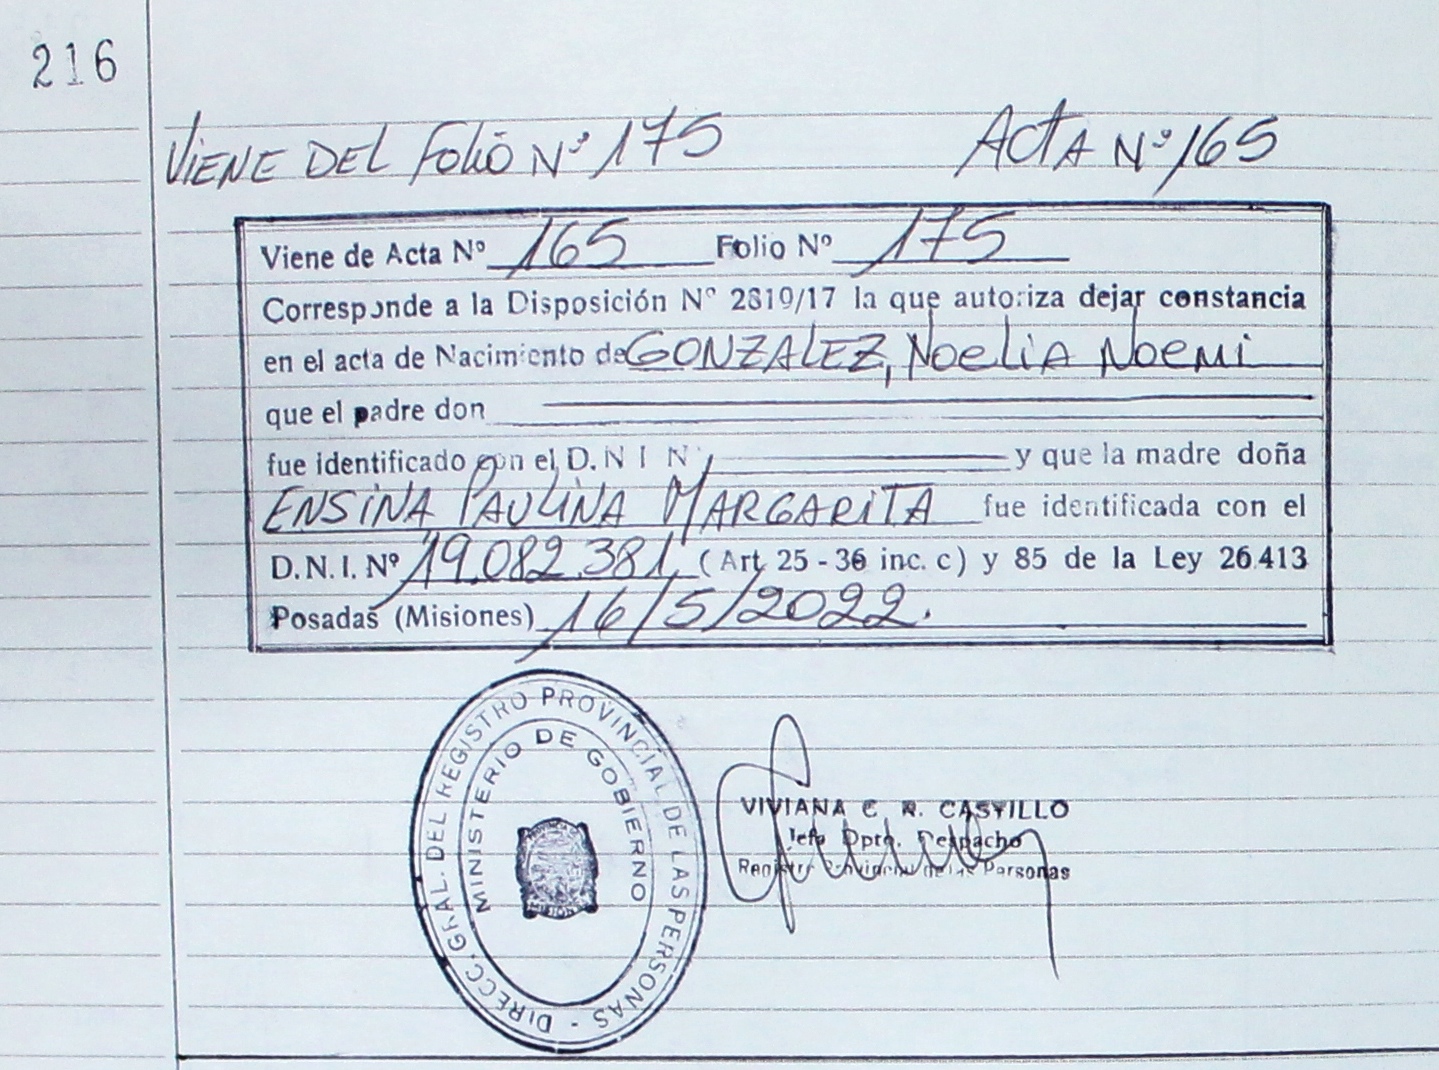 216
VIENE DEL FOLIO Nº 175 ACTA Nº 165
Viene de Acta Nº 165 Folio Nº 175
Corresponde a la Disposición Nº 2819/17 la que autoriza dejar constancia
en el acta de Nacimiento de GONZALEZ, NOELIA NOEMI
que el padre don
fue identificado con el D.N I N y que la madre doña
ENSINA PAULINA MARGARITA fue identificada con el
D.N.I. Nº 19.082.381 (Art 25 - 36 inc. c) y 85 de la Ley 26.413
Posadas (Misiones) 16/5/2022.
DIRECC. GRAL. DEL REGISTRO PROVINCIAL DE LAS PERSONAS -
MINISTERIO DE GOBIERNO
MISIONES
VIVIANA C. R. CASTILLO
Jefa Dpto. Despacho
Registro Provincial de las Personas